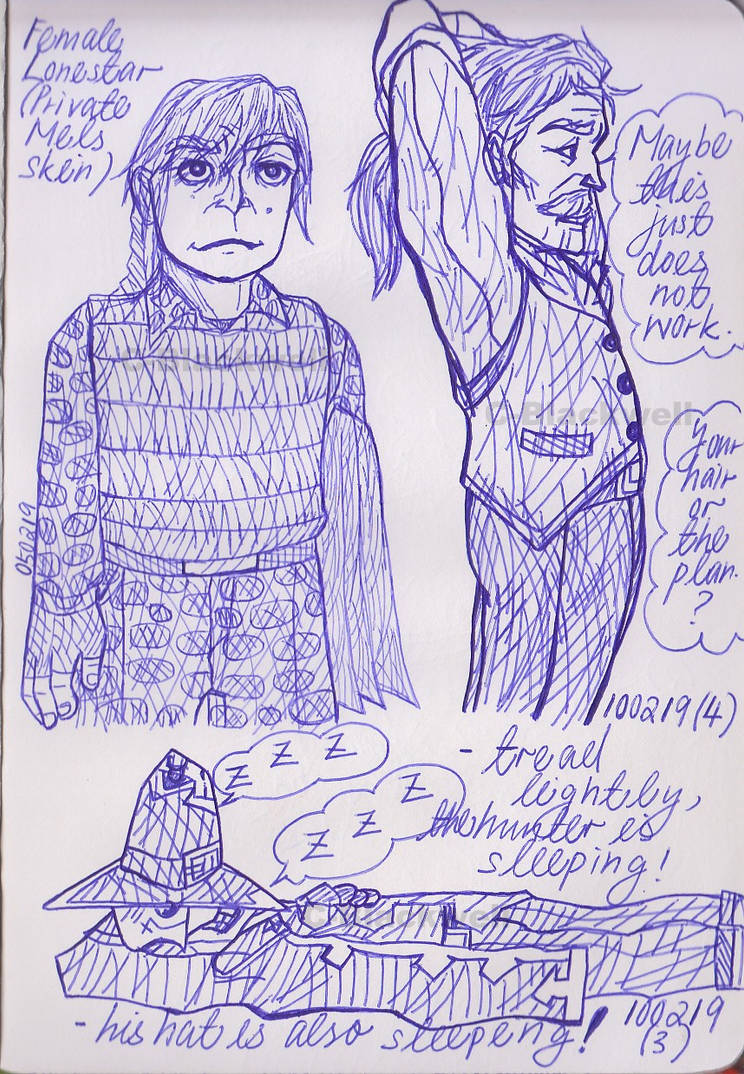 Female
Lonestar
(Private
Mels
skin)
Maybe
this
just
does
not
work.
your
hair
or
the
plan.
?
050219
C.Blackwell
C.Blackwell
100219(4)
z z z
z z z
- tread
lightly,
the hunter is
sleeping!
C.Blackwell
- his hat is also sleeping!
100219
(3)